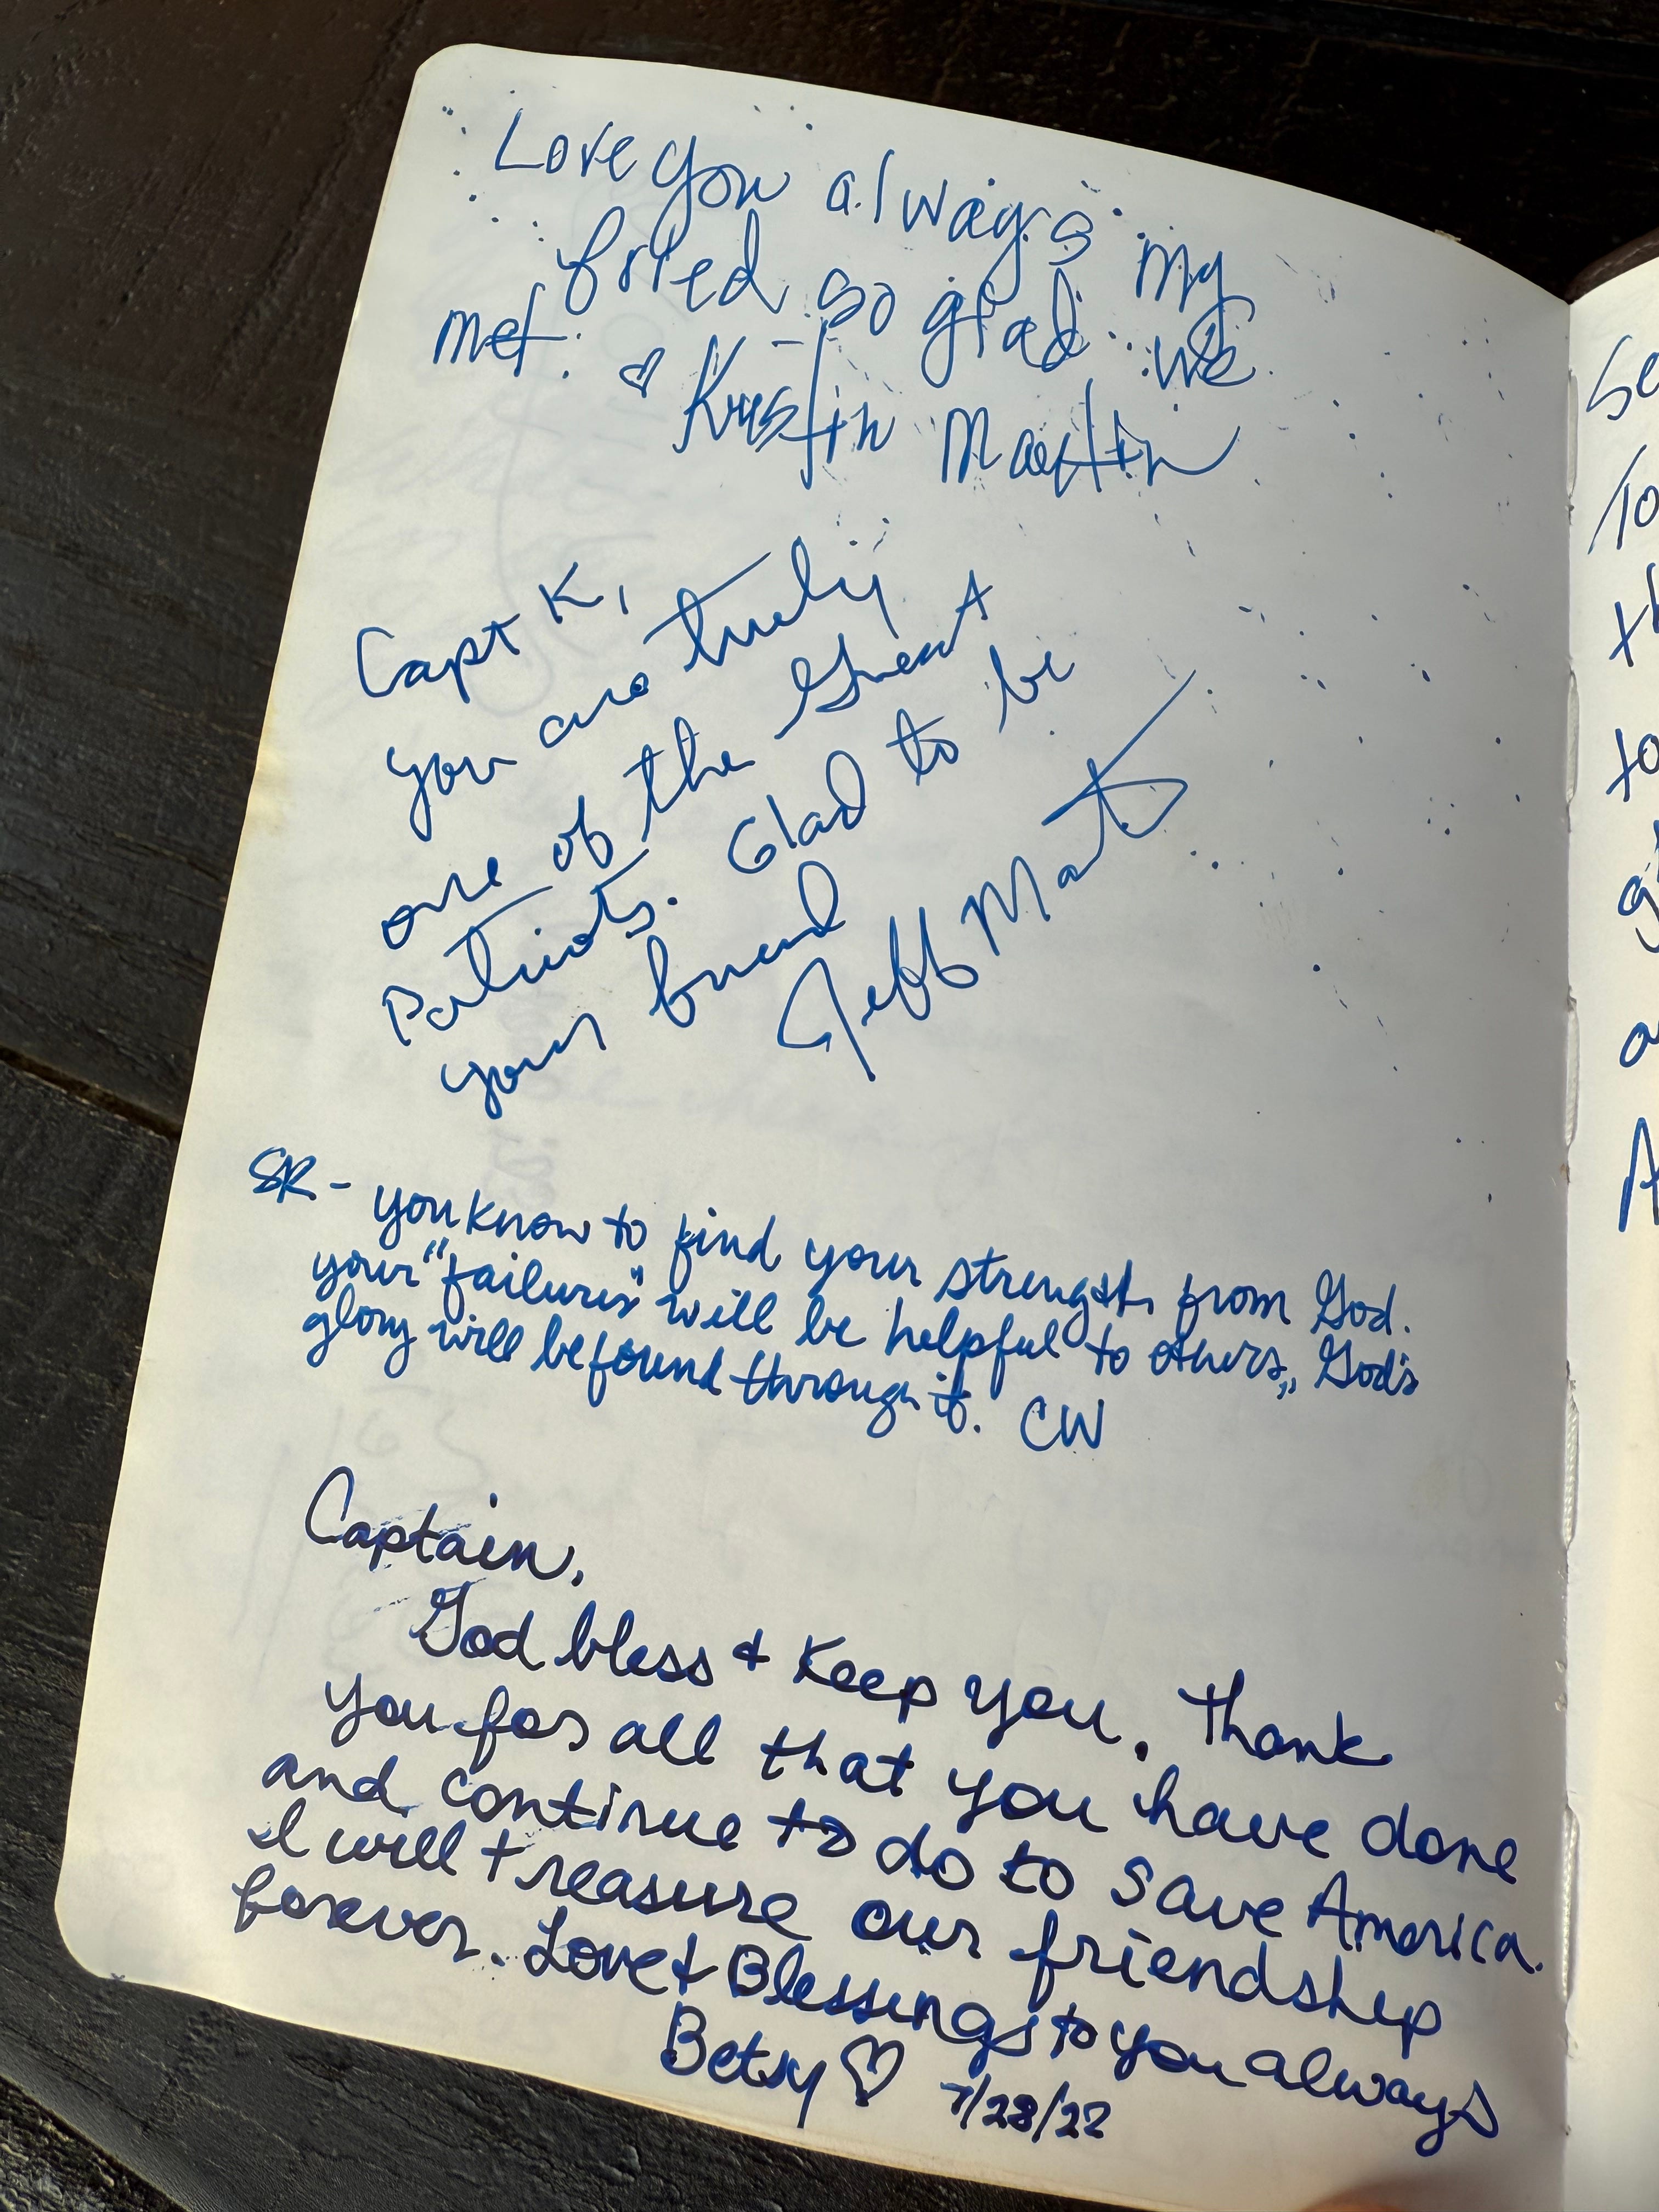 Love you always my
fried so glad we
met. ♡ Kristin Martin
Capt K,
you are truly
one of the Great
Patriots. Glad to be
your friend
Jeff Mart
SR - you know to find your strength from God.
your "failures" will be helpful to others,, God's
glory will be found through it. CW
Captain,
God bless & Keep you. Thank
you for all that you have done
and continue to do to save America.
I will treasure our friendship
forever. Love & Blessings to you always
Betsy ♡ 7/28/22
Se
to
th
to
g
a
A